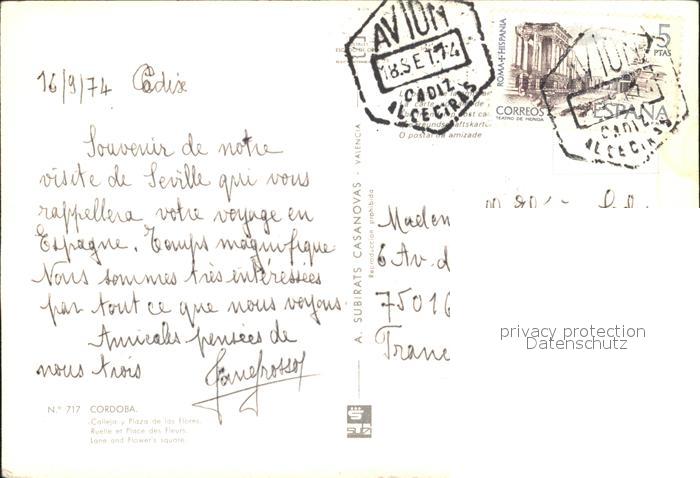 16/9/74 Cadix
Souvenir de notre
visite de Seville qui vous
rappellera votre voyage en
Espagne. Temps magnifique
Nous sommes très intéressées
par tout ce que nous voyons.
Amicales pensées de
nous trois
Nº 717 CORDOBA.
Calleja y Plaza de las Flores.
Ruelle et Place des Fleurs.
Lane and Flower's square.
A. SUBIRATS CASANOVAS - VALENCIA
Reproducción prohibida
AVION
18 SET. 74
CADIZ
ALGECIRAS
ROMA + HISPANIA
5
PTAS
CORREOS
TEATRO DE MERIDA
ESPAÑA
AVION
CADIZ
ALGECIRAS
O postal da amizade
Madem
6 Av. d
75016
Franc
privacy protection
Datenschutz